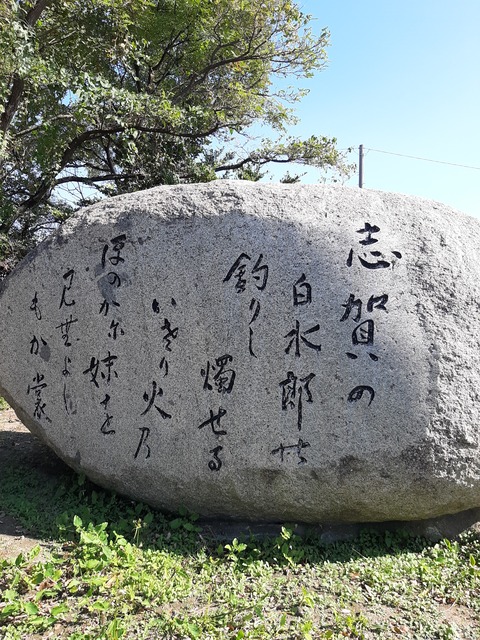 志賀の
白水郎
釣りし
燭せる
いさり火乃
ほのか尓妹を
見無よし
もか裳